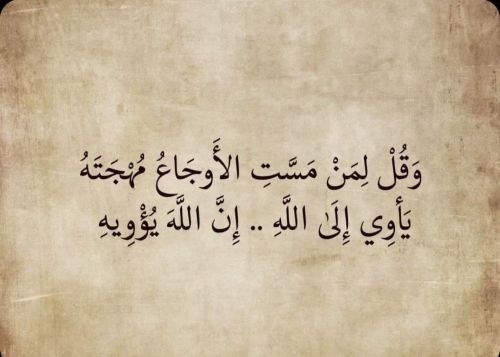 وَقُلْ لِمَنْ مَسَّتِ الأَوجَاعُ مُهْجَتَهُ
يَأوِي إِلَىٰ اللَّهِ .. إِنَّ اللَّهَ يُؤْوِيهِ